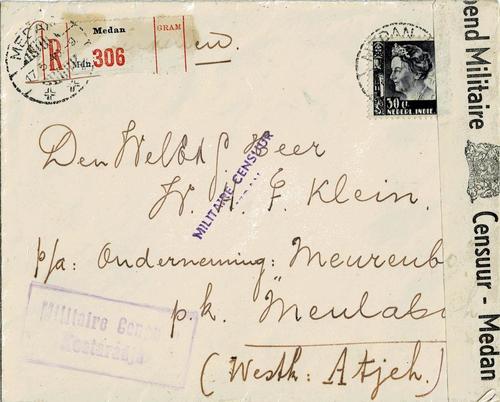 MEDAN
Medan
GRAM
R
Mdn.
306
MEDAN
30 ct.
NEDERL. INDIE
Den WelEd. Heer
MILITAIRE CENSUUR
W. F. Klein.
p/a: Onderneming: Meureub
p.k. Meulabo
Militaire Censu
Koetaradja
(Westk: Atjeh.)
pend Militaire
Censuur - Medan